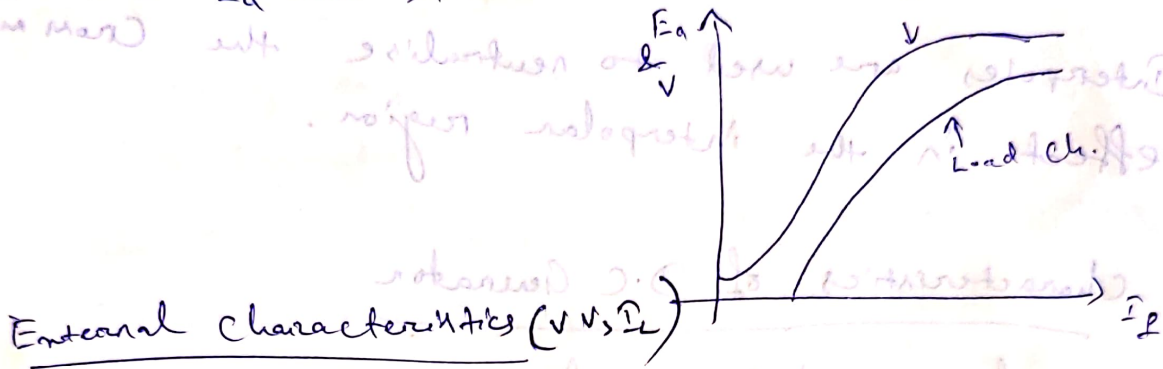 Ea
&
V
V
Load Ch.
If
External Characteristics (V Vs IL)